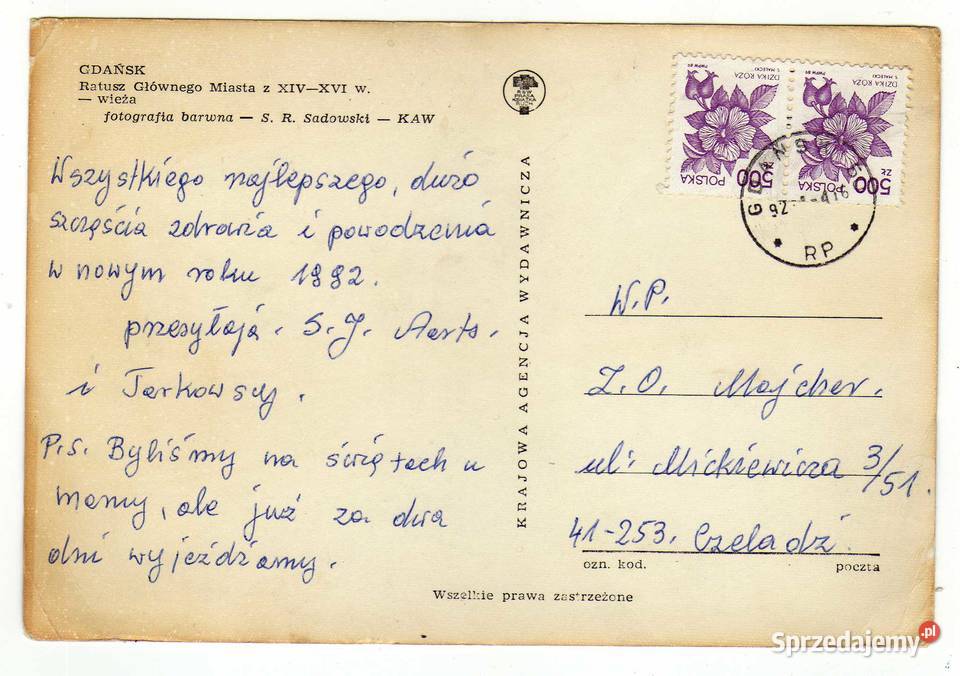 GDAŃSK
Ratusz Głównego Miasta z XIV—XVI w.
— wieża
fotografia barwna — S. R. Sadowski — KAW
Wszystkiego najlepszego, dużo
szczęścia zdrowia i powodzenia
w nowym roku 1992.
przesyłają. S. J. Aarts.
i Tarkowscy.
P.S. Byliśmy na świętach u
mamy, ale już za dwa
dni wyjeżdżamy.
KRAJOWA AGENCJA WYDAWNICZA
RSW
PRASA
KSIĄŻKA
RUCH
DZIKA RÓŻA
S. MAŁECKI
PWPW 89
POLSKA
500
ZŁ
DZIKA RÓŻA
S. MAŁECKI
PWPW 89
POLSKA
500
ZŁ
GDAŃSK
92
RP
W.P.
Z.O. Majcher.
ul. Mickiewicza 3/51.
41-253. Czeladź.
ozn. kod. poczta
Wszelkie prawa zastrzeżone
Sprzedajemy.pl